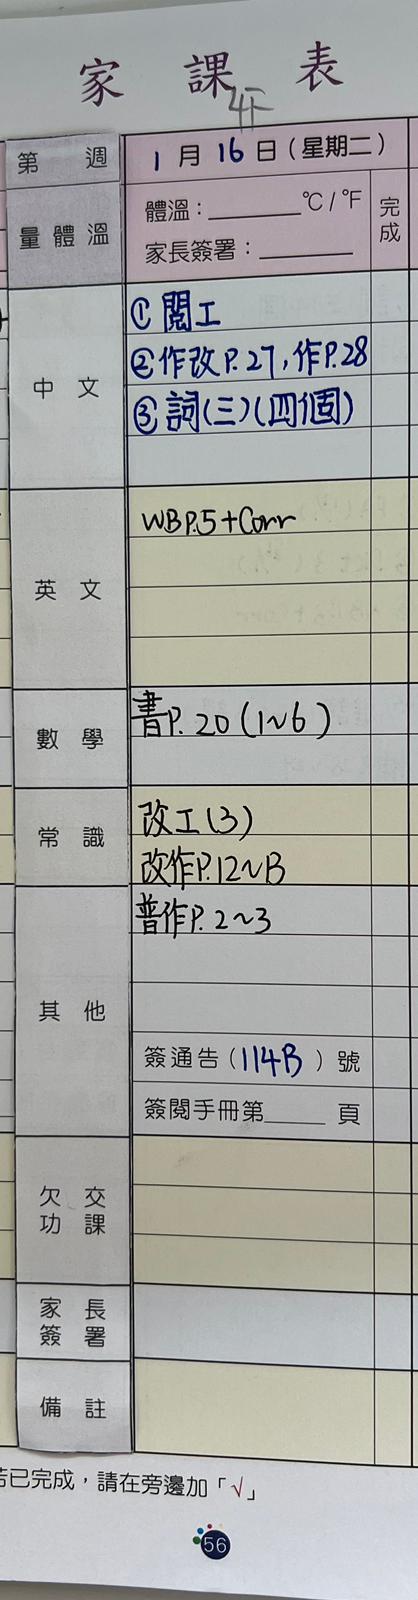 家課表
4F
第週 1月16日(星期二)
量體溫 體溫：______°C / °F 完成
家長簽署：______
中文
① 閱工
② 作改P.27, 作P.28
③ 詞(三)(四個)
英文
WB P.5 + Corr
數學
書P. 20 (1~6)
常識
改工(3)
改作P.12~13
其他
普作P. 2~3
簽通告(114B)號
簽閱手冊第____頁
欠交功課
家長簽署
備註
已完成，請在旁邊加「√」
56